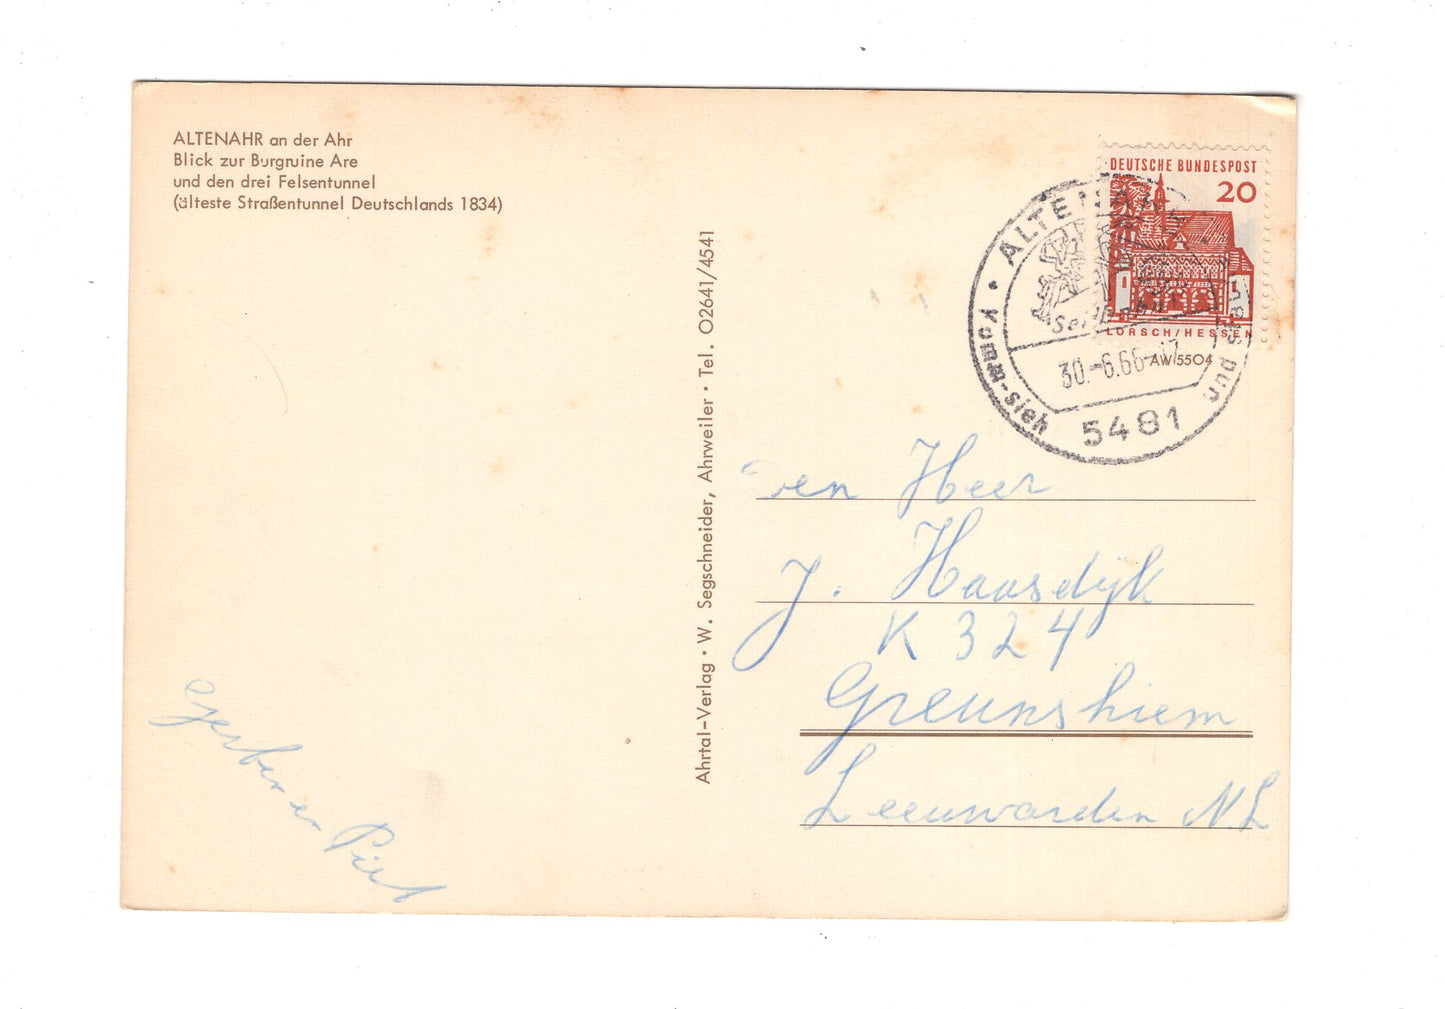 ALTENAHR an der Ahr
Blick zur Burgruine Are
und den drei Felsentunnel
(älteste Straßentunnel Deutschlands 1834)
Ahrtal-Verlag • W. Segschneider, Ahrweiler • Tel. 02641/4541
DEUTSCHE BUNDESPOST
20
LORSCH/HESSEN
AW 5504
ALTENAHR
• Komm-sieh
und
30.-6.66-17
5481
Den Heer
J. Haasdijk
K 324
Greunshiem
Leeuwarden N.L
en Piet